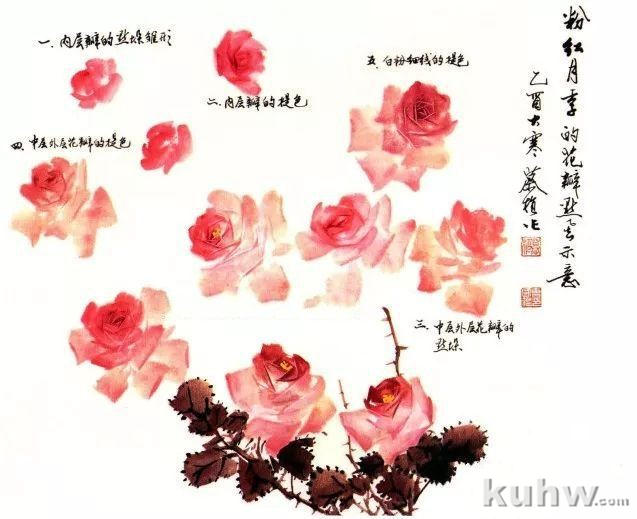 粉红月季的花瓣点法示意
乙酉大寒 蔡植作
一、内层瓣的点垛雏形
二、内层瓣的提色
五、白粉细线的提色
四、中层外层花瓣的提色
三、中层外层花瓣的
点垛
kuhw.com